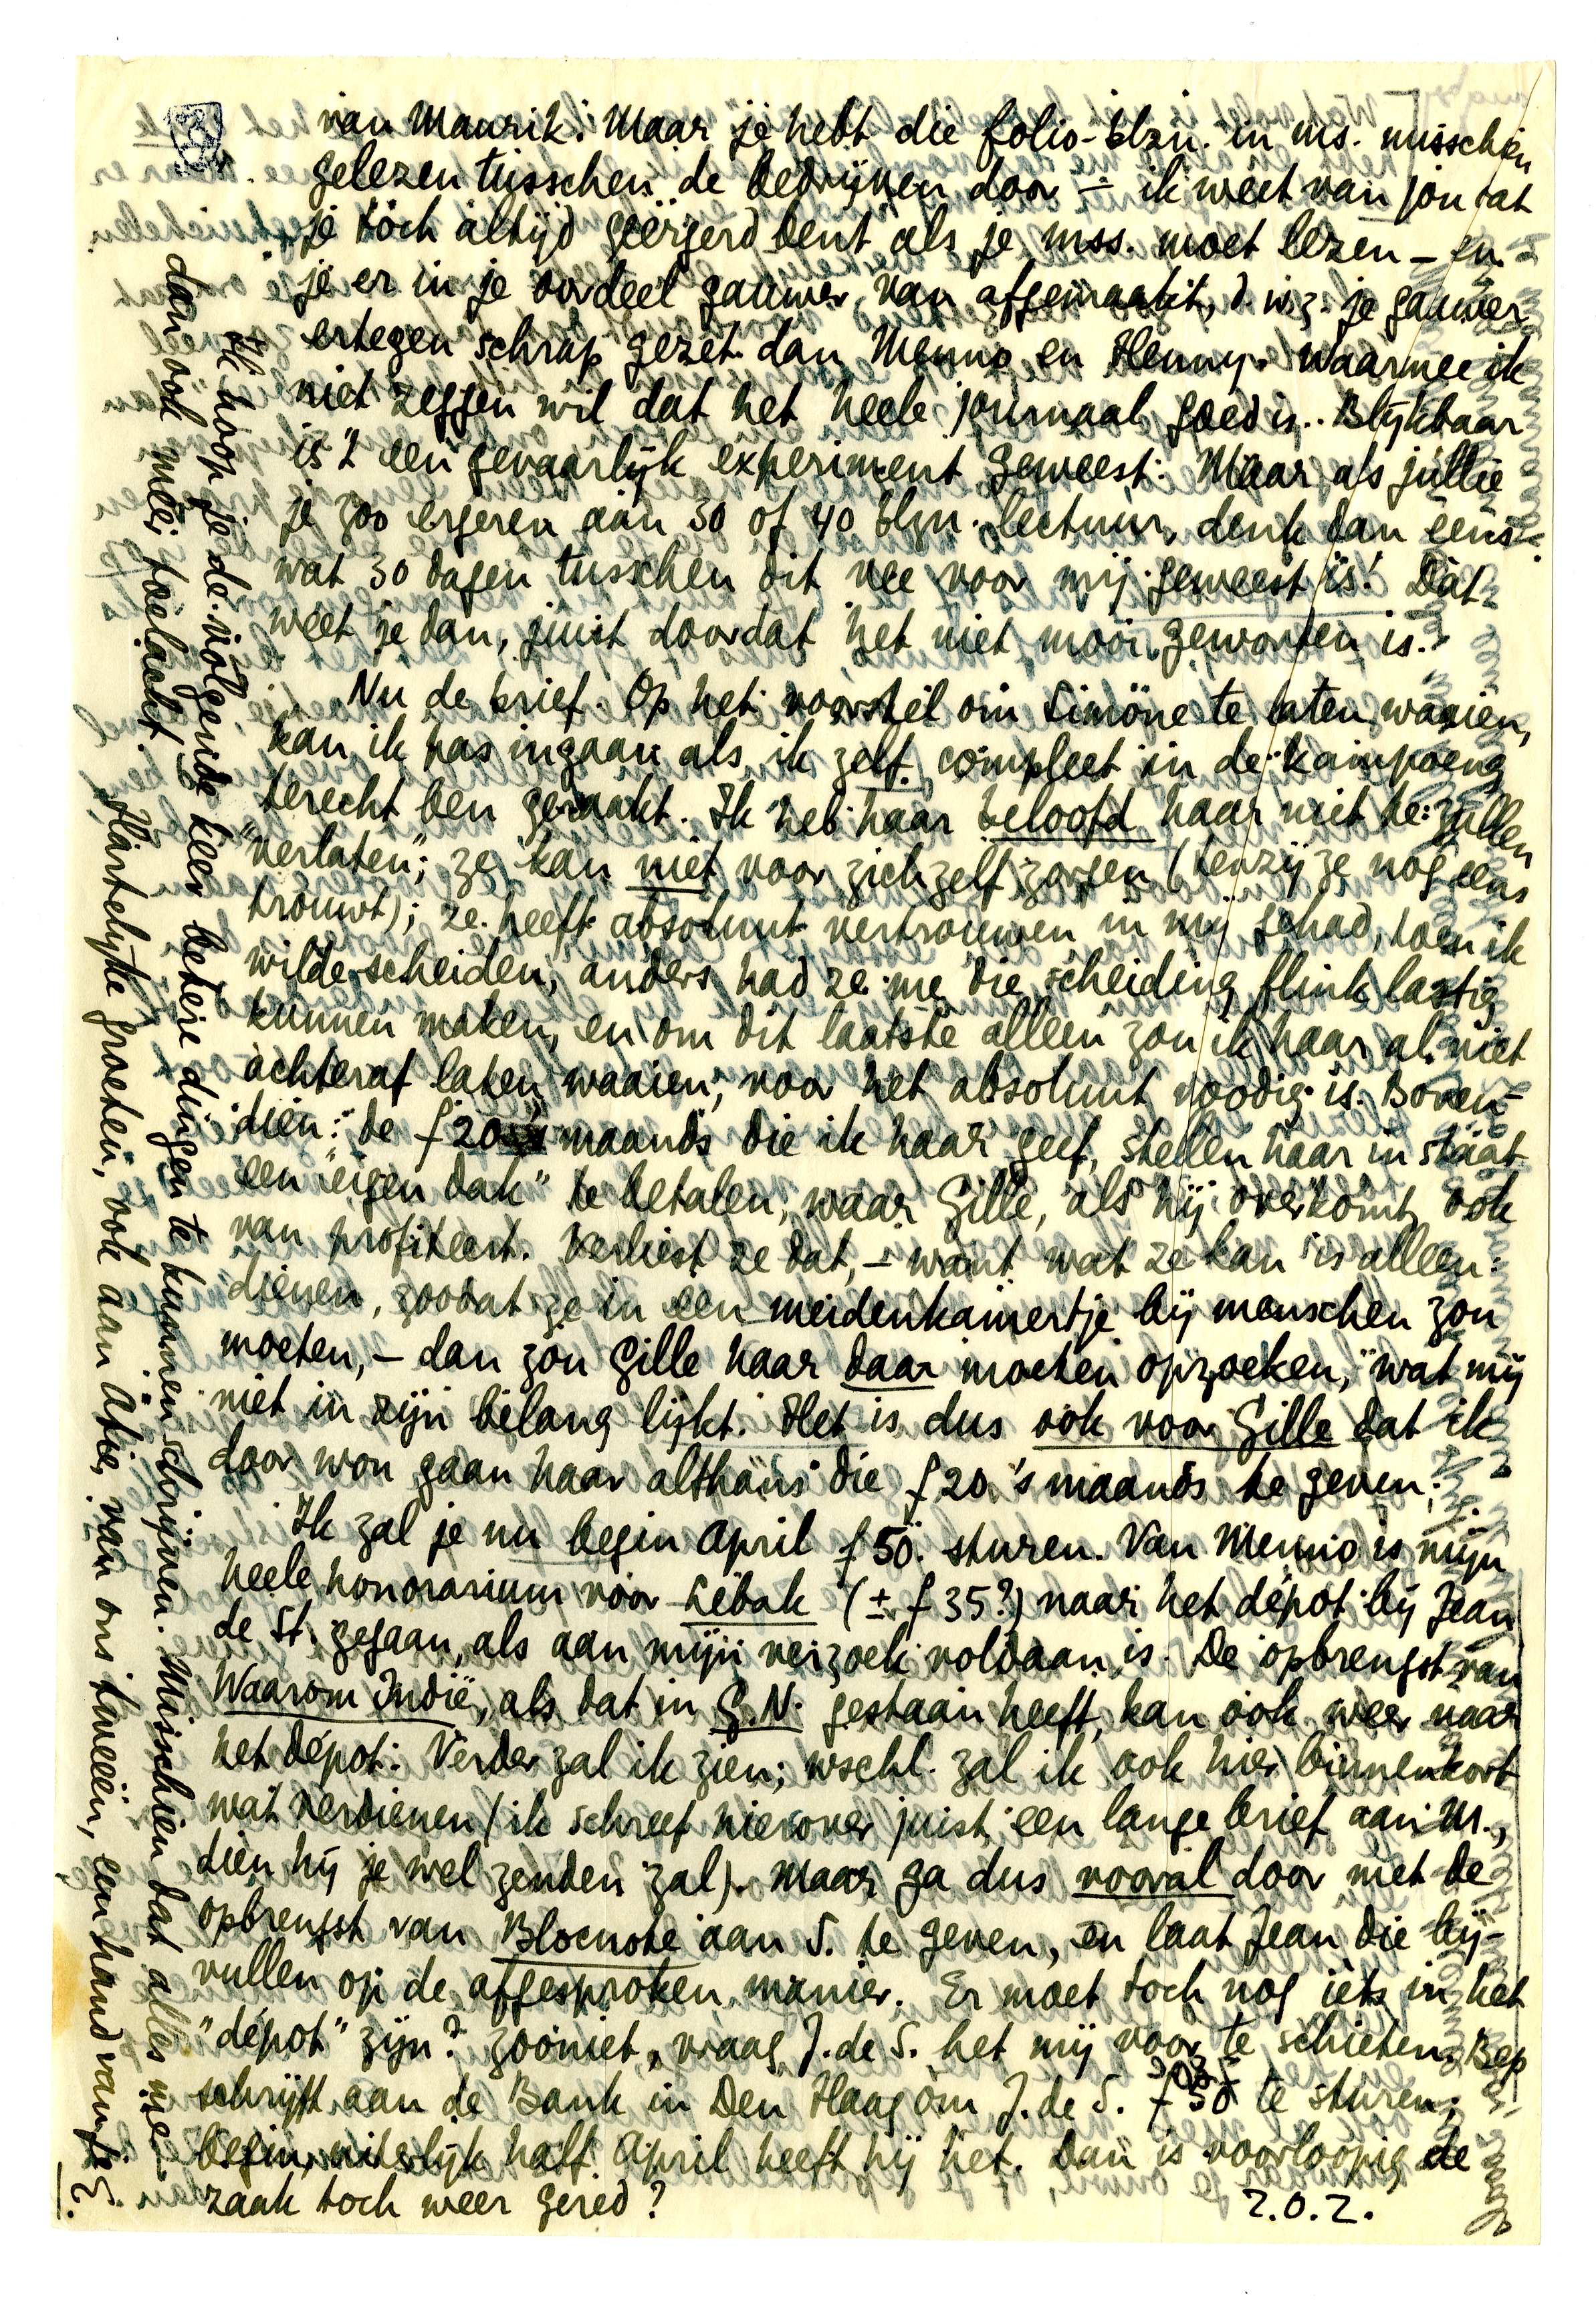 van Maurik. Maar je hebt die folio-blzn. in ms. misschien
gelezen tusschen de bedrijven door — ik weet van jou dat
je tòch altijd geërgerd bent als je mss. moet lezen — en
je er in je oordeel gauwer van afgemaakt, d.w.z. je gauwer
ertegen schrap gezet dan Menno en Henny. Waarmee ik
niet zeggen wil dat het heele journaal goed is.. Blijkbaar
is 't een gevaarlijk experiment geweest. Maar als jullie
je zoo ergeren aan 30 of 40 blzn. lectuur, denk dan eens
wat 30 dagen tusschen dit vee voor mij geweest is! Dàt
weet je dan, juist doordat het niet mooi geworden is.
Nu de brief. Op het voorstel om Simone te laten waaien,
kan ik pas ingaan als ik zelf compleet in de kampoeng
terecht ben geraakt. Ik heb haar beloofd haar niet te zullen
"verlaten"; ze kan niet voor zichzelf zorgen (tenzij ze nog eens
trouwt); ze heeft absoluut vertrouwen in mij gehad, toen ik
wilde scheiden, anders had ze me die scheiding flink lastig
kunnen maken, en om dit laatste alleen zou ik haar al niet
achteraf laten waaien, voor het absoluut noodig is. Boven-
dien: de f 20 maands die ik haar geef, stellen haar in staat
een "eigen dak" te betalen, waar Gille, als hij overkomt, ook
van profiteert. Verliest ze dat, — want wat ze kan is alleen:
dienen, zoodat ze in een meidenkamertje bij menschen zou
moeten, — dan zou Gille haar daar moeten opzoeken, wat mij
niet in zijn belang lijkt. Het is dus ook voor Gille dat ik
door wou gaan haar althans die f 20 's maands te geven.
Ik zal je nu begin April f 50. sturen. Van Menno is mijn
heele honorarium voor Lebak (± f 35?) naar het dépot bij Jean
de St. gegaan, als aan mijn verzoek voldaan is. De opbrengst van
Waarom Indië, als dat in G.N. gestaan heeft, kan ook weer naar
het dépot. Verder zal ik zien; wschl. zal ik ook hier binnenkort
wat verdienen (ik schreef hierover juist een lange brief aan M.,
dien hij je wel zenden zal). Maar ga dus vooral door met de
opbrengst van Blocnote aan S. te geven, en laat Jean die bij-
vullen op de afgesproken manier. Er moet toch nog iets in het
"dépot" zijn? Zooniet, vraag J. de S. het mij voor te schieten. Bep
schrijft aan de Bank in Den Haag om J. de S. f 50 te sturen;
begin, uiterlijk half April heeft hij het. Dan is voorloopig de
zaak toch weer gered?
Z.O.Z.
Ik hoop je de volgende keer betere dingen te kunnen schrijven. Misschien dat alles me
dan ook meer toelacht.
Hartelijke groeten, ook aan Atie, van ons tweeën, een hand van je E.